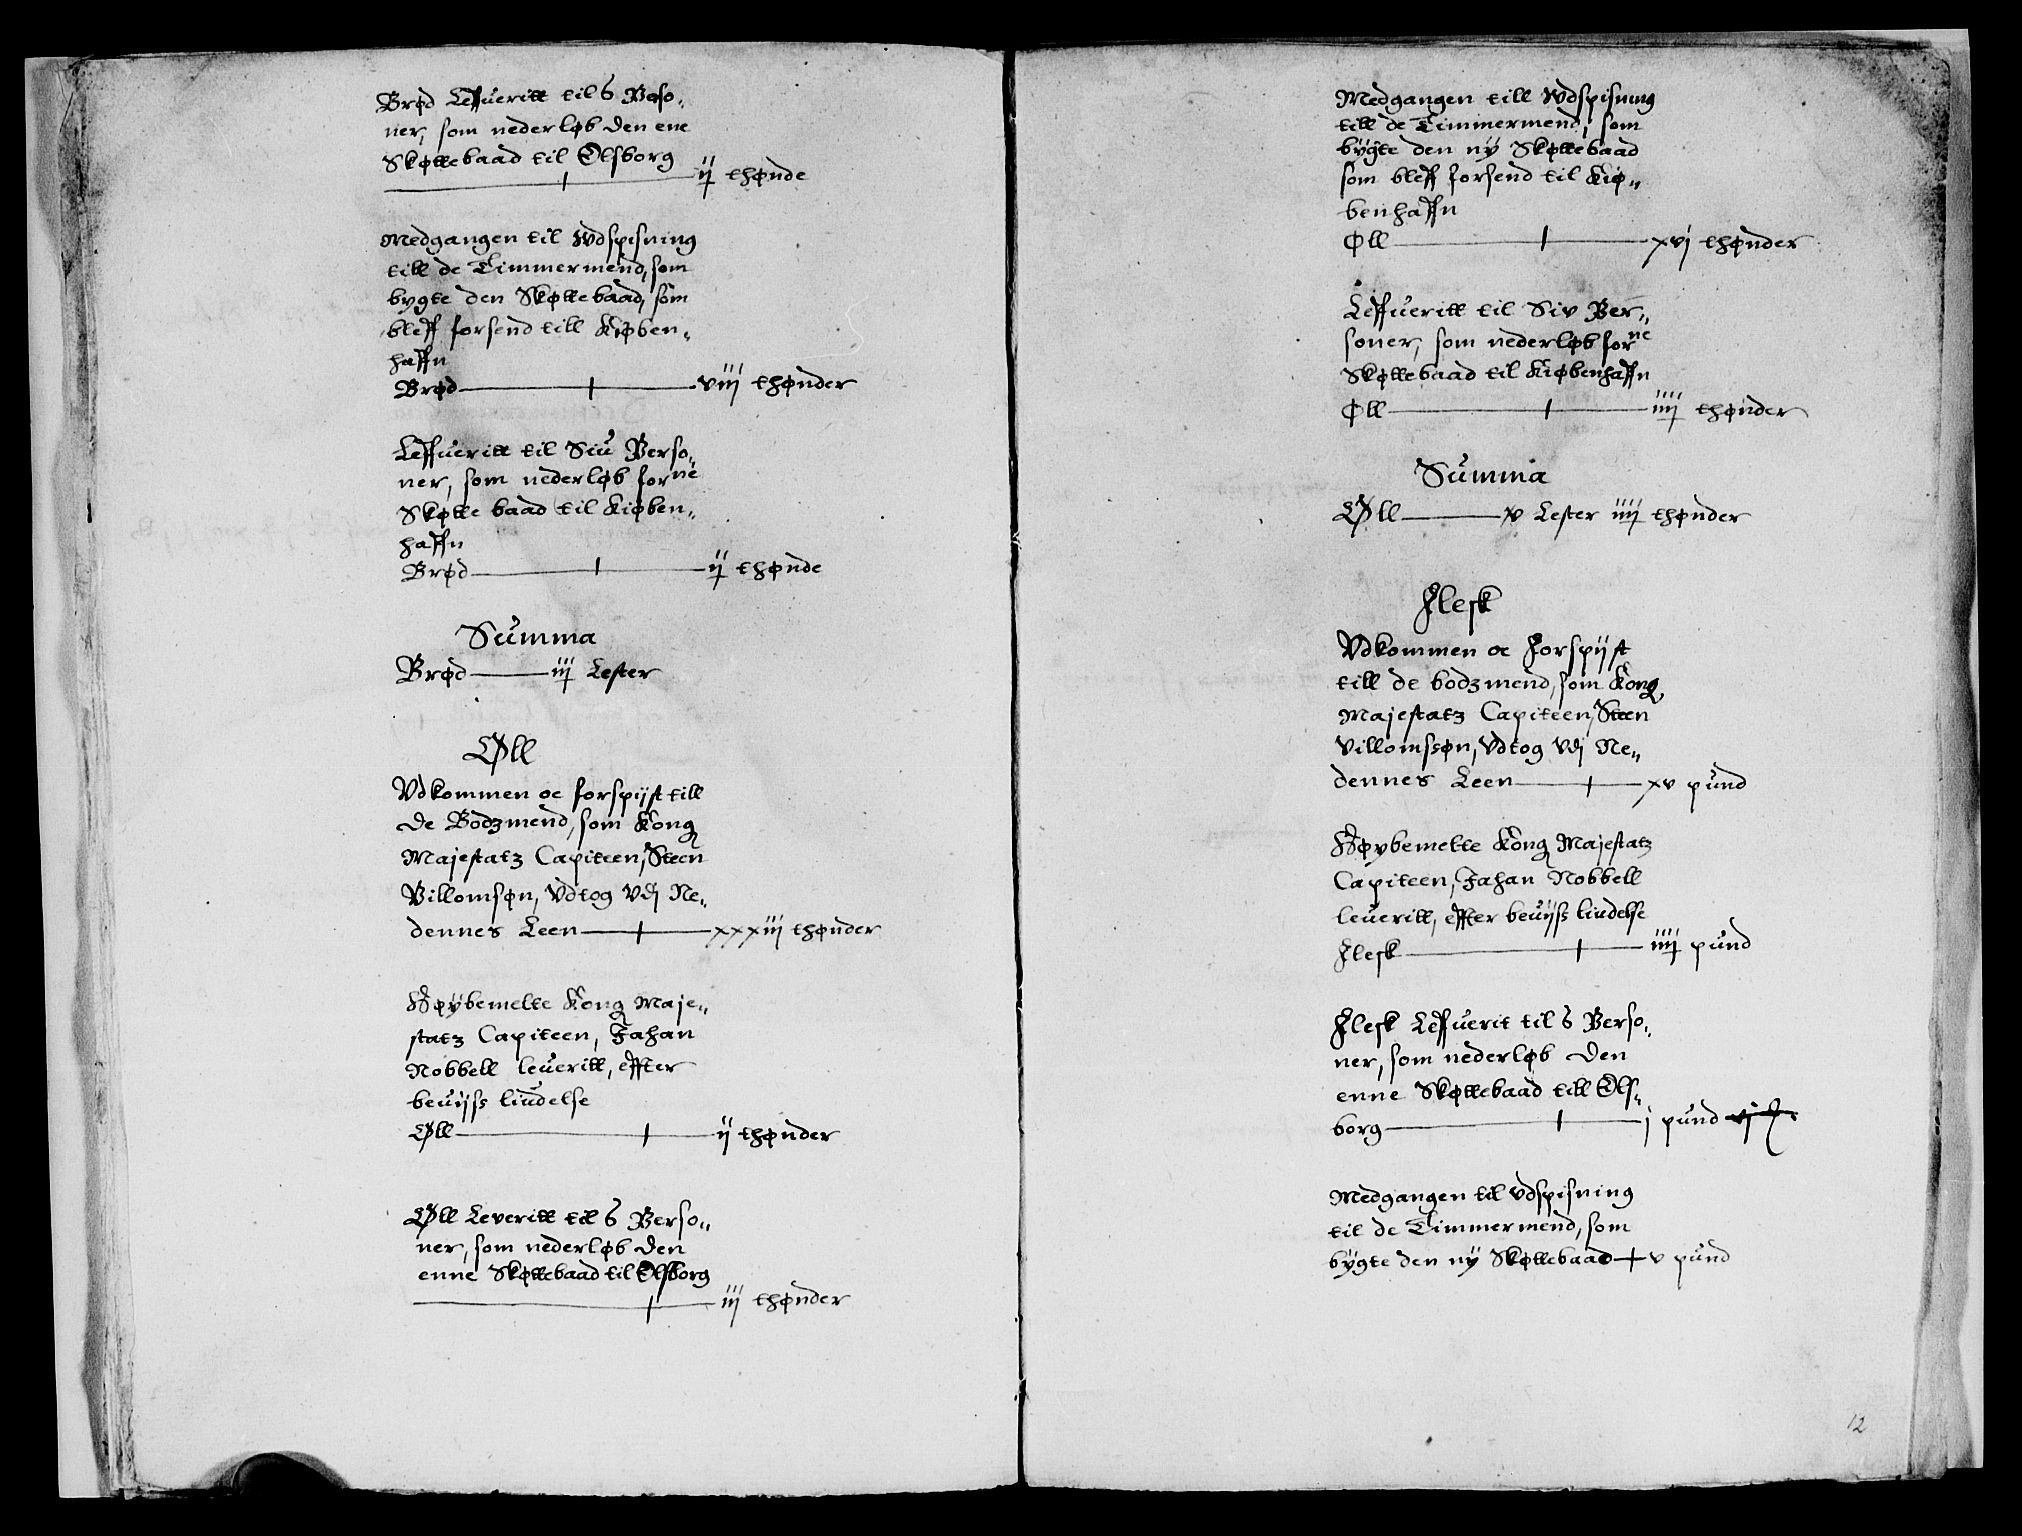 Brød Leffueritt til 6 Perso„
ner, som nederløb den ene
Skøttebaad til Olsborg
ij thønde
Medgangen til Wdspisning
till de Timmermend, som
bygte den Skøttebaad, som
bleff forsend till Kiøben„
haffn
Brød viij thønder
Leffueritt til Siu Perso„
ner, som nederløb forne
Skøtte baad til Kiøben„
haffn
Brød ij thønde
Summa
Brød iij Lester
Øll
Vdkommen oc forspijst till
de Bodzmend, som Kong
Majestatz Capiteen, Steen
Villomsøn, Vdtog Vdj Ne„
dennes Leen xxxiij thønder
Høybemelte Kong Maje„
statz Capiteen, Jahan
Nobbell leueritt, effter
beuijss liudelse
Øll ij thønder
Øll Leveritt til 6 Perso„
ner, som nederløb den
enne Skøttebaad til Olsborg
iij thønder
Medgangen till Wdspisning
till de Timmermend, som
bygte den ny Skøttebaad
som bleff forsend til Kiø„
benhaffn
Øll xvj thønder
Leffueritt til Siv Per„
soner, som nederløb forne
Skøttebaad til Kiøbenhaffn
Øll iiij thønder
Summa
Øll v Lester iiij thønder
Flesk
Vdkommen oc Forspijst
till de bodzmend, som Kong
Majestatz Capiteen, Steen
Villomssøn, Vdtog Vdj Ne„
dennes Leen xv pund
Høybemelte Kong Majestatz
Capiteen, Jahan Nobbell
leueritt, effter beuijss liudelse
Flesk iiij pund
Flesk Leffuerit til 6 Perso„
ner, som nederløb den
enne Skøttebaad till Ols„
borg j pund
Medgangen til vdspisning
til de Timmermend, som
bygte den ny Skøttebaad v pund
12